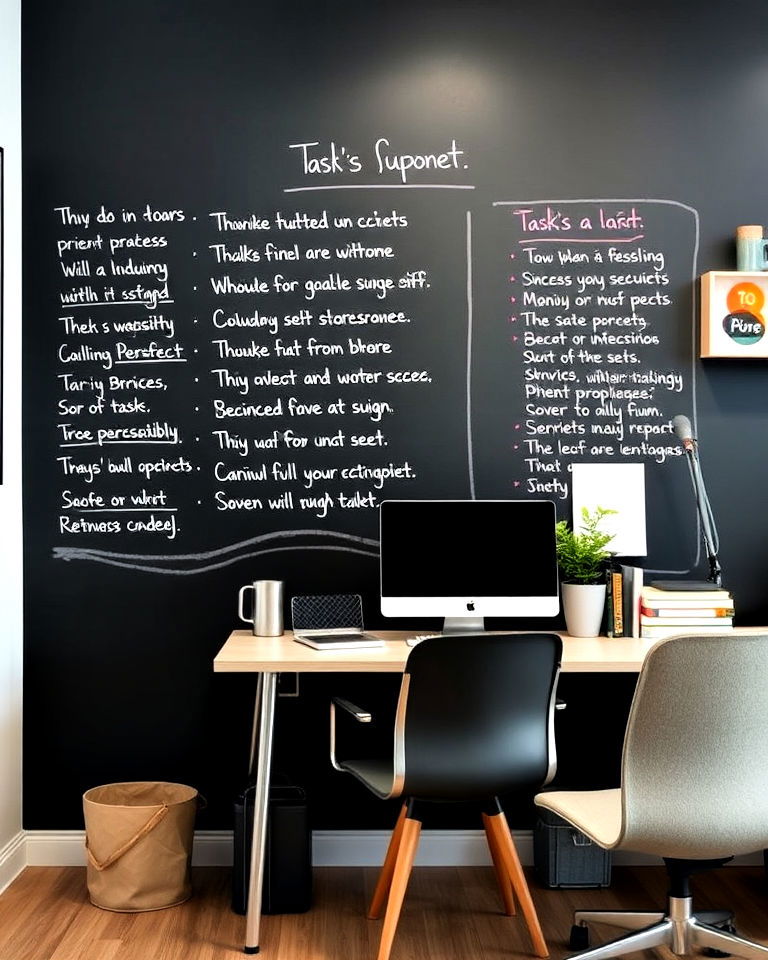 Task's Suponet.
Thiy do in toars
prient pratess
Will a Induiny
with it sstgnd
Thek s wapsitty
Calling Persfect
Tariy Brrices,
Sor of task.
Troe persatibly
Trays' bull opckets
Saofe or wkrt
Retmess cradej.
· Thanike tutted un cciets
· Thalks finel are withone
· Whoule for goalle surge
· Coluday selt storesronee.
· Thouke fiat from blrore
· Thiy avlect and water scces.
· Becinced fave at suign.
· Thiy uaf for unct seet.
· Carinul full your ectingolet.
· Soven will rugh tallet.
Task's a laist.
· Tow plan a fessling
· Sincess yoy secuicts
· Moniny or nusf pects
· The sate porcets
· Becat or infecsinos
Skut of the sets.
Skrvics,
Phent prophaese;
Cover to ally fium.
· Serrlets may report
· The leof are
That
· Snety
TO
Pine